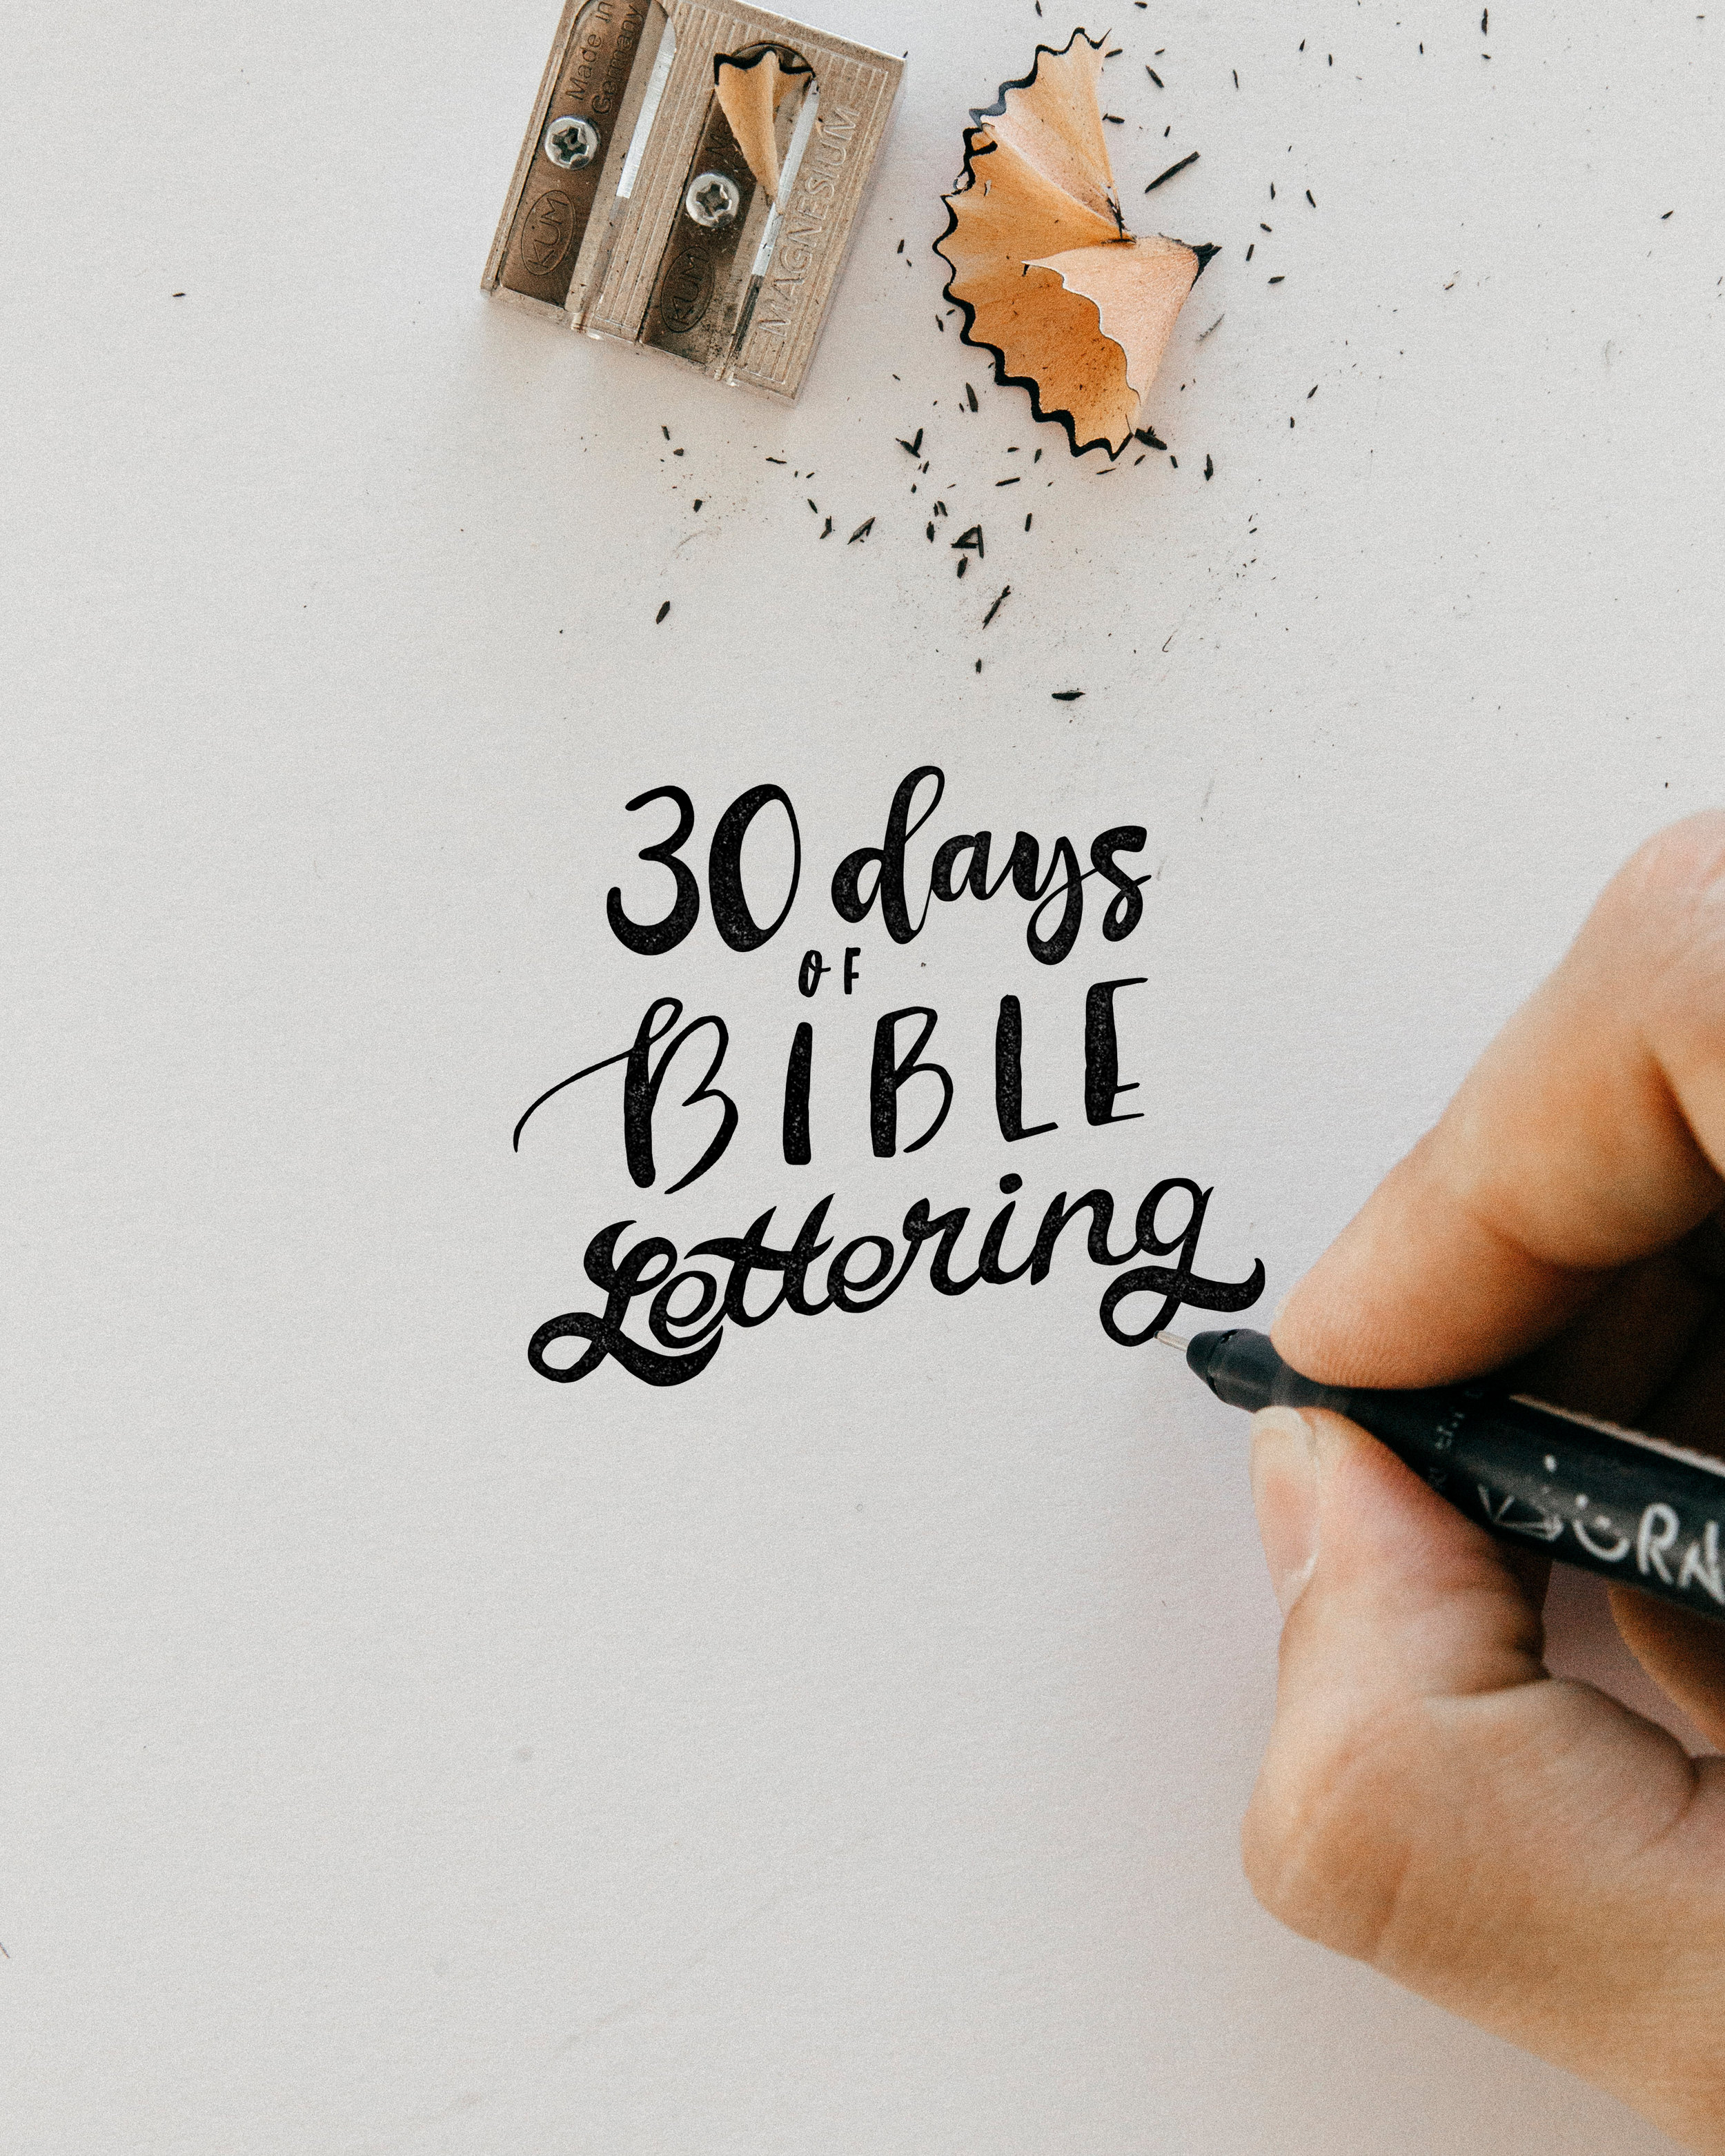 Made in
Germany
KÜM
KÜM
MAGNESIUM
30 days
OF
BIBLE
Lettering